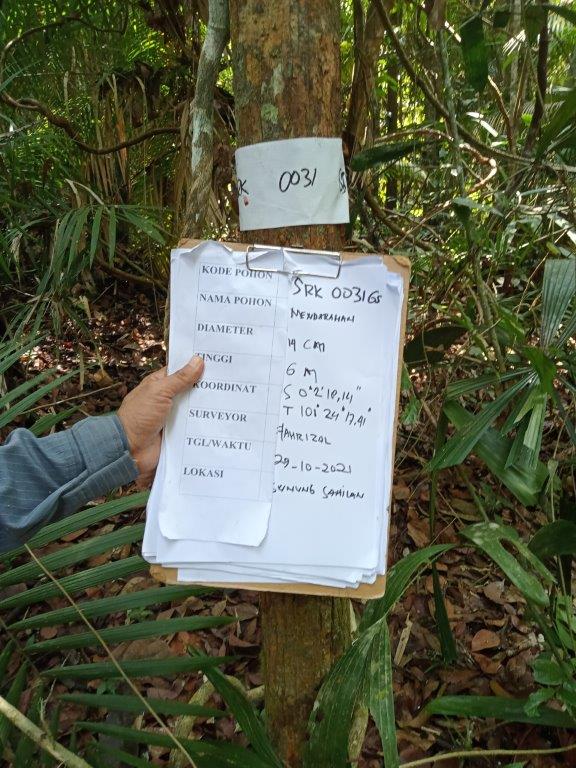 SRK 0031 GS
KODE POHON SRK 0031GS
NAMA POHON MENDARAHAN
DIAMETER 19 CM
TINGGI 6 M
KOORDINAT S 0°2'18,14"
T 101°24'17,41"
SURVEYOR FAHRIZAL
TGL/WAKTU 29-10-2021
LOKASI GUNUNG SAHILAN